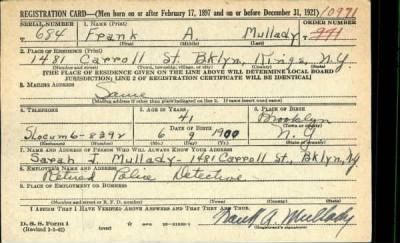 REGISTRATION CARD—(Men born on or after February 17, 1897 and on or before December 31, 1921) 10971
SERIAL NUMBER 1. NAME (Print) ORDER NUMBER
684 Frank A. Mullady 971
(First) (Middle) (Last)
2. PLACE OF RESIDENCE (Print)
1481 Carroll St. Bklyn, Kings, N.Y
(Number and street) (Town, township, village, or city) (County) (State)
[THE PLACE OF RESIDENCE GIVEN ON THE LINE ABOVE WILL DETERMINE LOCAL BOARD
JURISDICTION; LINE 2 OF REGISTRATION CERTIFICATE WILL BE IDENTICAL]
3. MAILING ADDRESS
Same
[Mailing address if other than place indicated on line 2. If same insert word same]
4. TELEPHONE 5. AGE IN YEARS 6. PLACE OF BIRTH
41 Brooklyn
DATE OF BIRTH (Town or county)
Slocum 6-8392 6 9 1900 N.Y
(Mo.) (Day) (Yr.) (State or country)
7. NAME AND ADDRESS OF PERSON WHO WILL ALWAYS KNOW YOUR ADDRESS
Sarah J. Mullady-1481 Carroll St., Bklyn, NY
8. EMPLOYER'S NAME AND ADDRESS
Retired Police Detective
9. PLACE OF EMPLOYMENT OR BUSINESS
(Number and street or R. F. D. number) (Town) (County) (State)
I AFFIRM THAT I HAVE VERIFIED ABOVE ANSWERS AND THAT THEY ARE TRUE.
D. S. S. Form 1
Frank A. Mullady